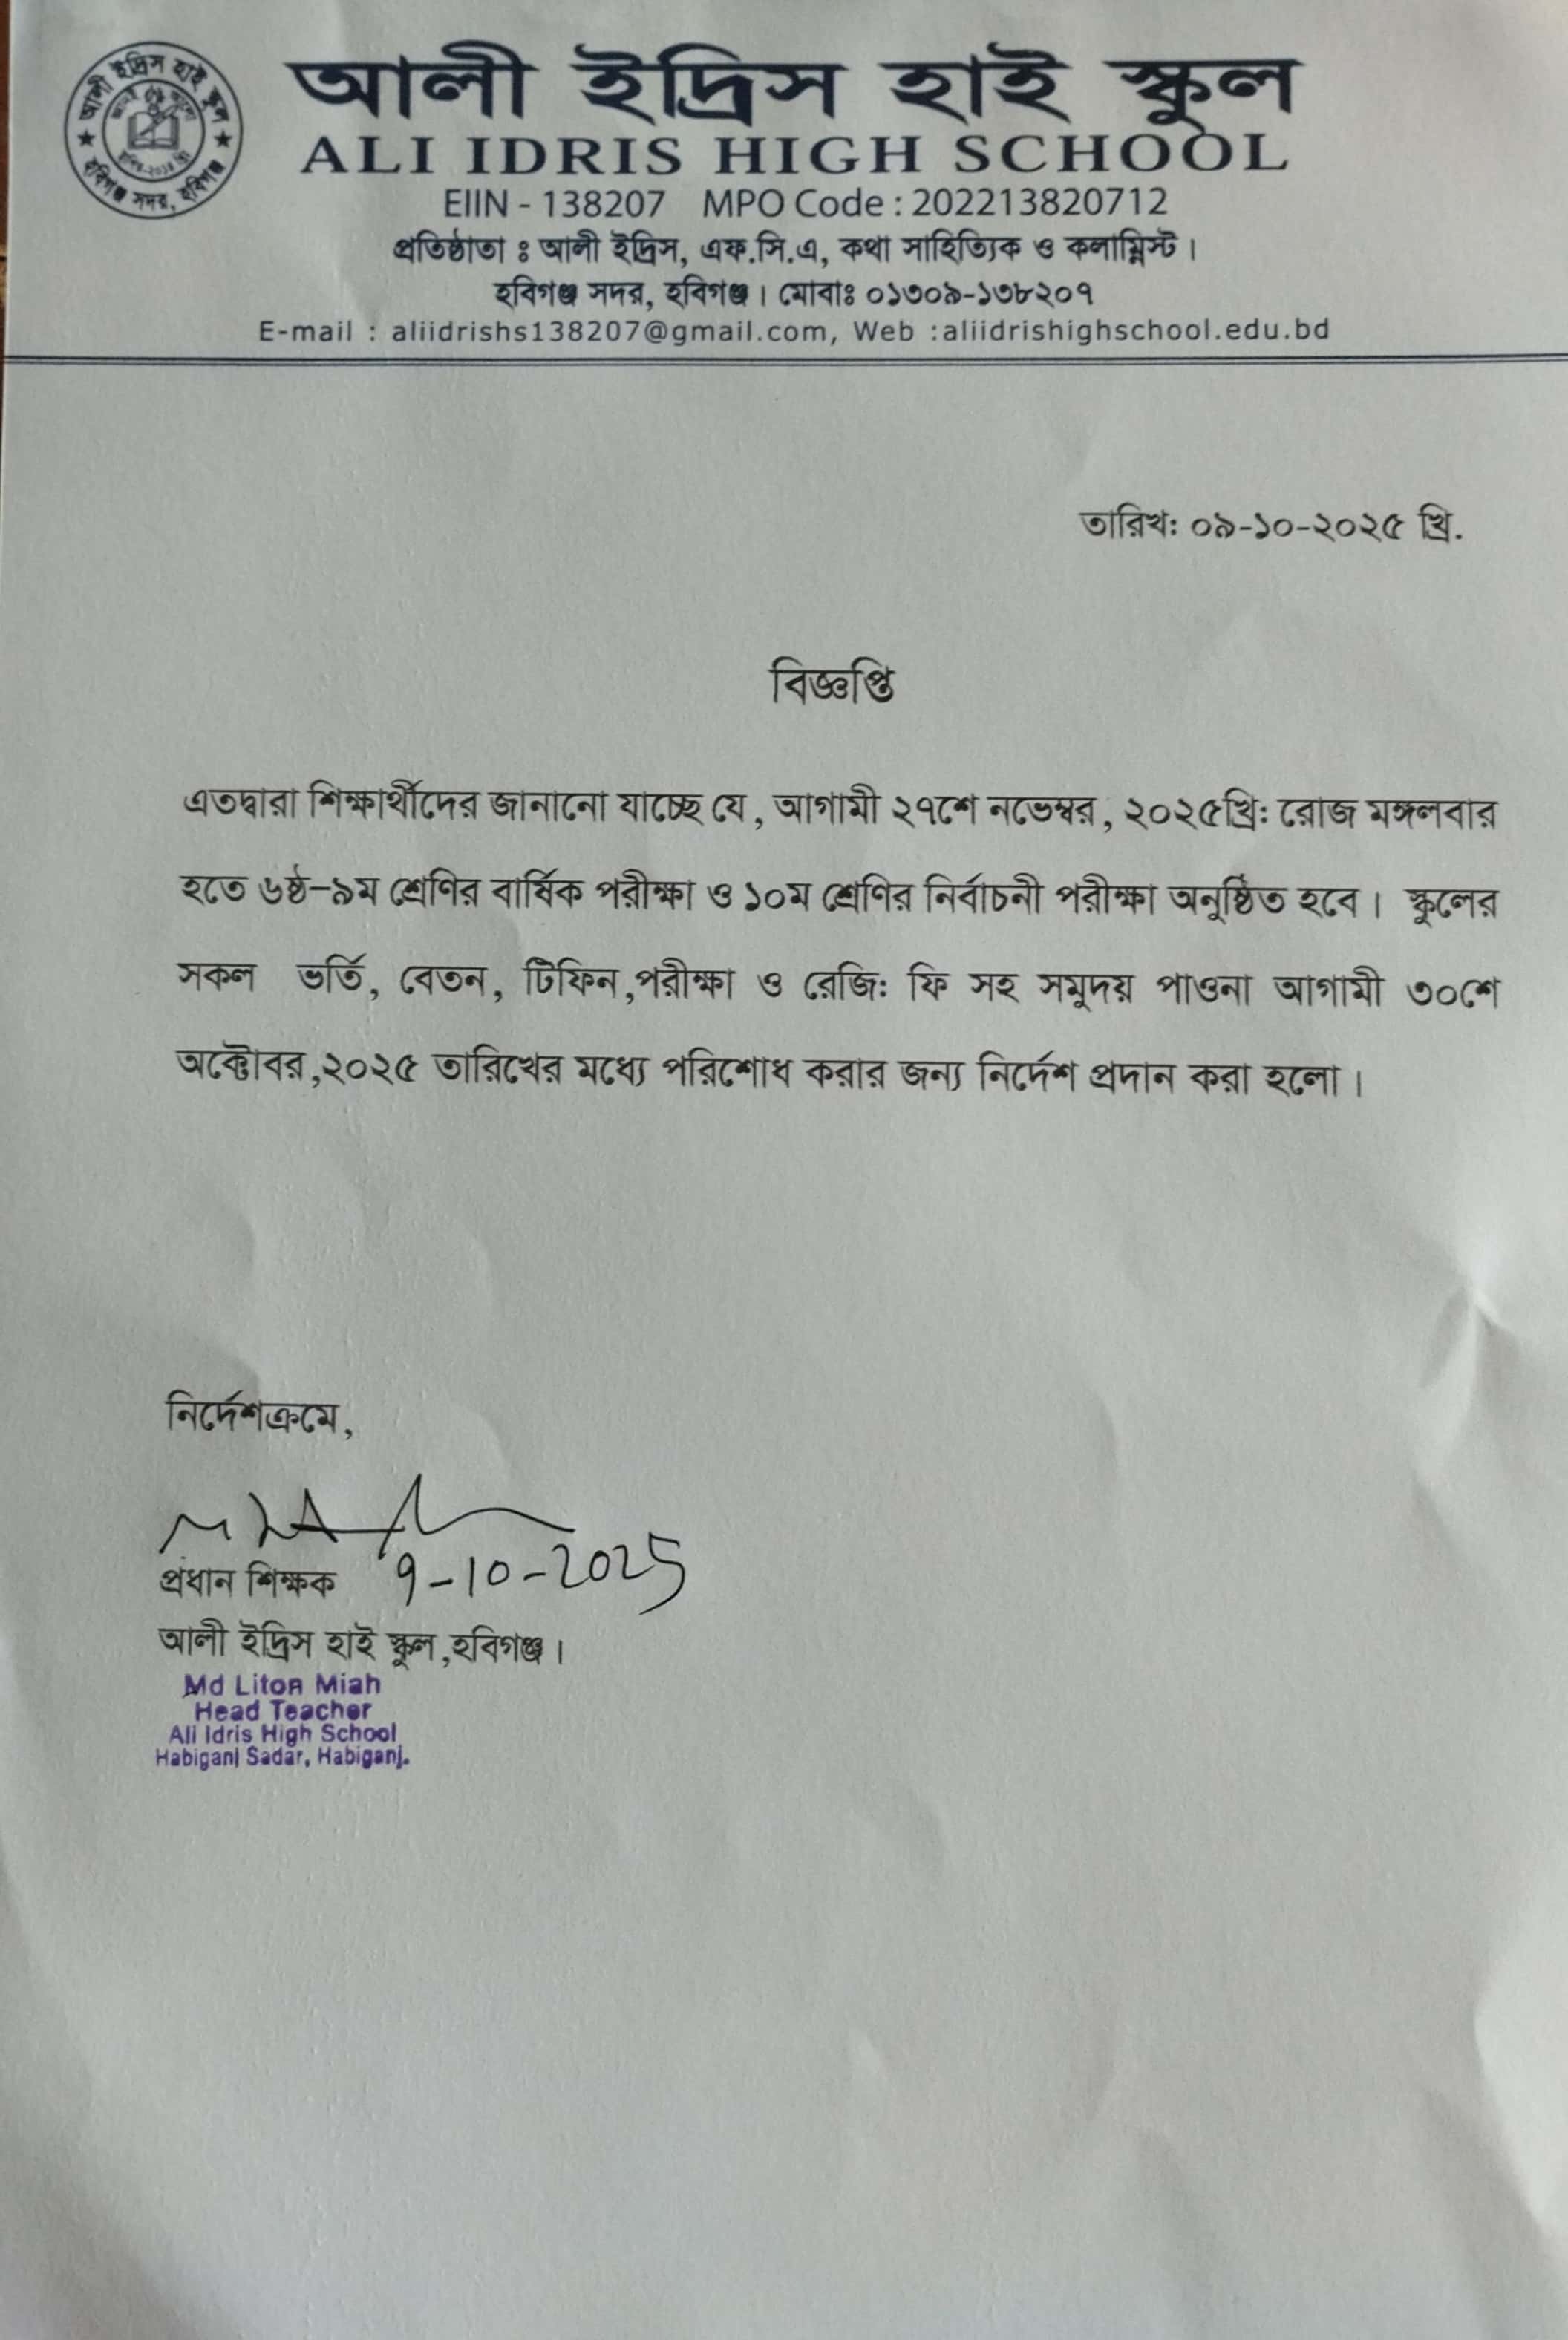 আলী ইদ্রিস হাই স্কুল
হবিগঞ্জ সদর, হবিগঞ্জ
আলী ইদ্রিস হাই স্কুল
ALI IDRIS HIGH SCHOOL
EIIN - 138207 MPO Code : 202213820712
প্রতিষ্ঠাতা ঃ আলী ইদ্রিস, এফ.সি.এ, কথা সাহিত্যিক ও কলামিস্ট।
হবিগঞ্জ সদর, হবিগঞ্জ। মোবাঃ ০১৩০৯-১৩৮২০৭
E-mail : aliidrishs138207@gmail.com, Web :aliidrishighschool.edu.bd
তারিখ: ০৯-১০-২০২৫ খ্রি.
বিজ্ঞপ্তি
এতদ্বারা শিক্ষার্থীদের জানানো যাচ্ছে যে, আগামী ২৭শে নভেম্বর, ২০২৫খ্রি: রোজ মঙ্গলবার
হতে ৬ষ্ঠ-৯ম শ্রেণির বার্ষিক পরীক্ষা ও ১০ম শ্রেণির নির্বাচনী পরীক্ষা অনুষ্ঠিত হবে। স্কুলের
সকল ভর্তি, বেতন, টিফিন,পরীক্ষা ও রেজি: ফি সহ সমুদয় পাওনা আগামী ৩০শে
অক্টোবর,২০২৫ তারিখের মধ্যে পরিশোধ করার জন্য নির্দেশ প্রদান করা হলো।
নির্দেশক্রমে,
প্রধান শিক্ষক 9-10-2025
আলী ইদ্রিস হাই স্কুল,হবিগঞ্জ।
Md Liton Miah
Head Teacher
Ali Idris High School
Habiganj Sadar, Habiganj.